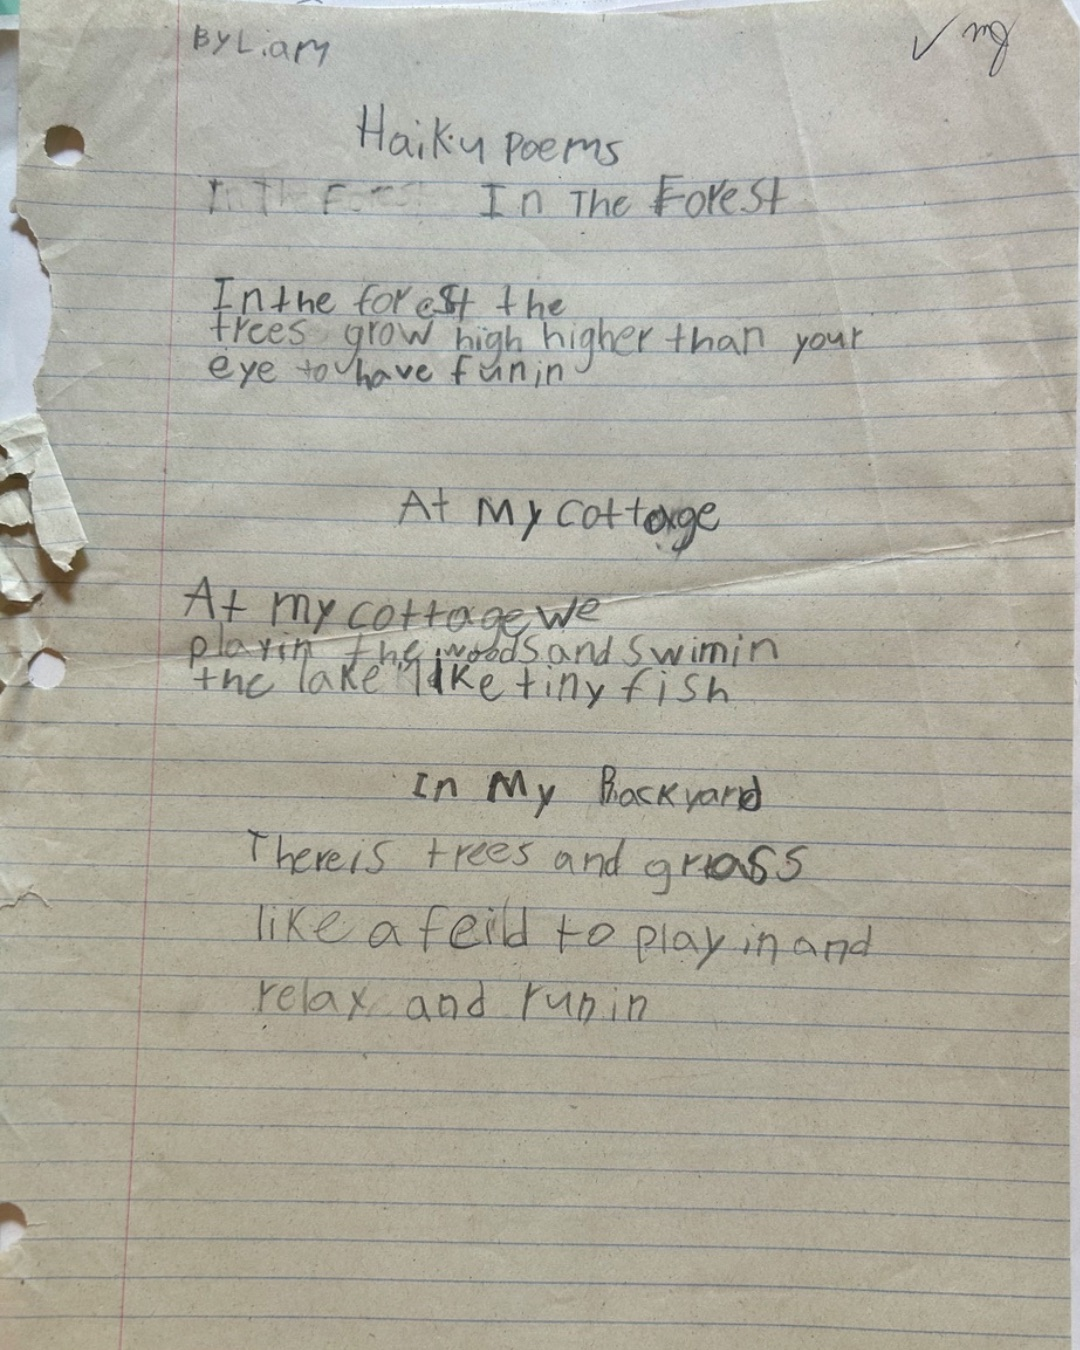 By Liam
Haiku poems
In The Forest In The Forest
In the forest the
trees grow high higher than your
eye to have fun in
At My cottage
At my cottage we
play in the woods and swim in
the lake like tiny fish
In My Backyard
There is trees and grass
like a feild to play in and
relax and run in